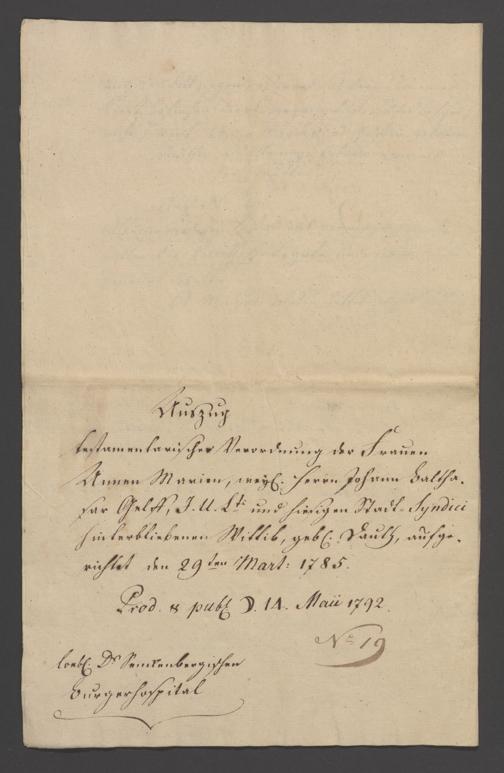 Auszug
testamentarischer Verordnung der Frauen
Annen Marien, weyl. Herrn Johann Baltha-
sar J. U. Lti und hiesigen Stadt-Syndici
hinterbliebenen Wittib, gebl. aufge-
richtet den 29ten Mart: 1785.
Prod. & publ. D. 14. Maii 1792.
No 19
loebl. Dr Senckenbergischen
Burgerhospital